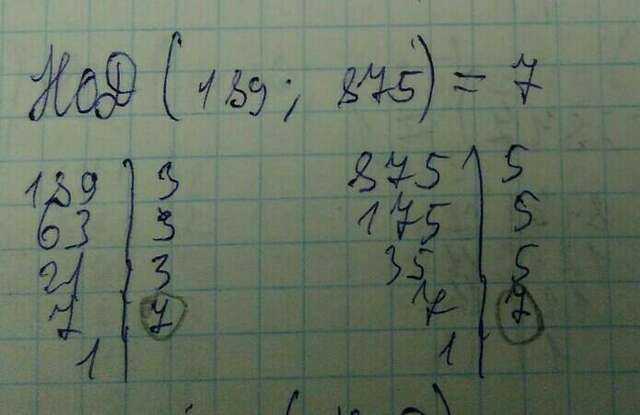 НОД (189; 875) = 7
189 | 3 875 | 5
63 | 3 175 | 5
21 | 3 35 | 5
7 | 7 7 | 7
1 | 1 |